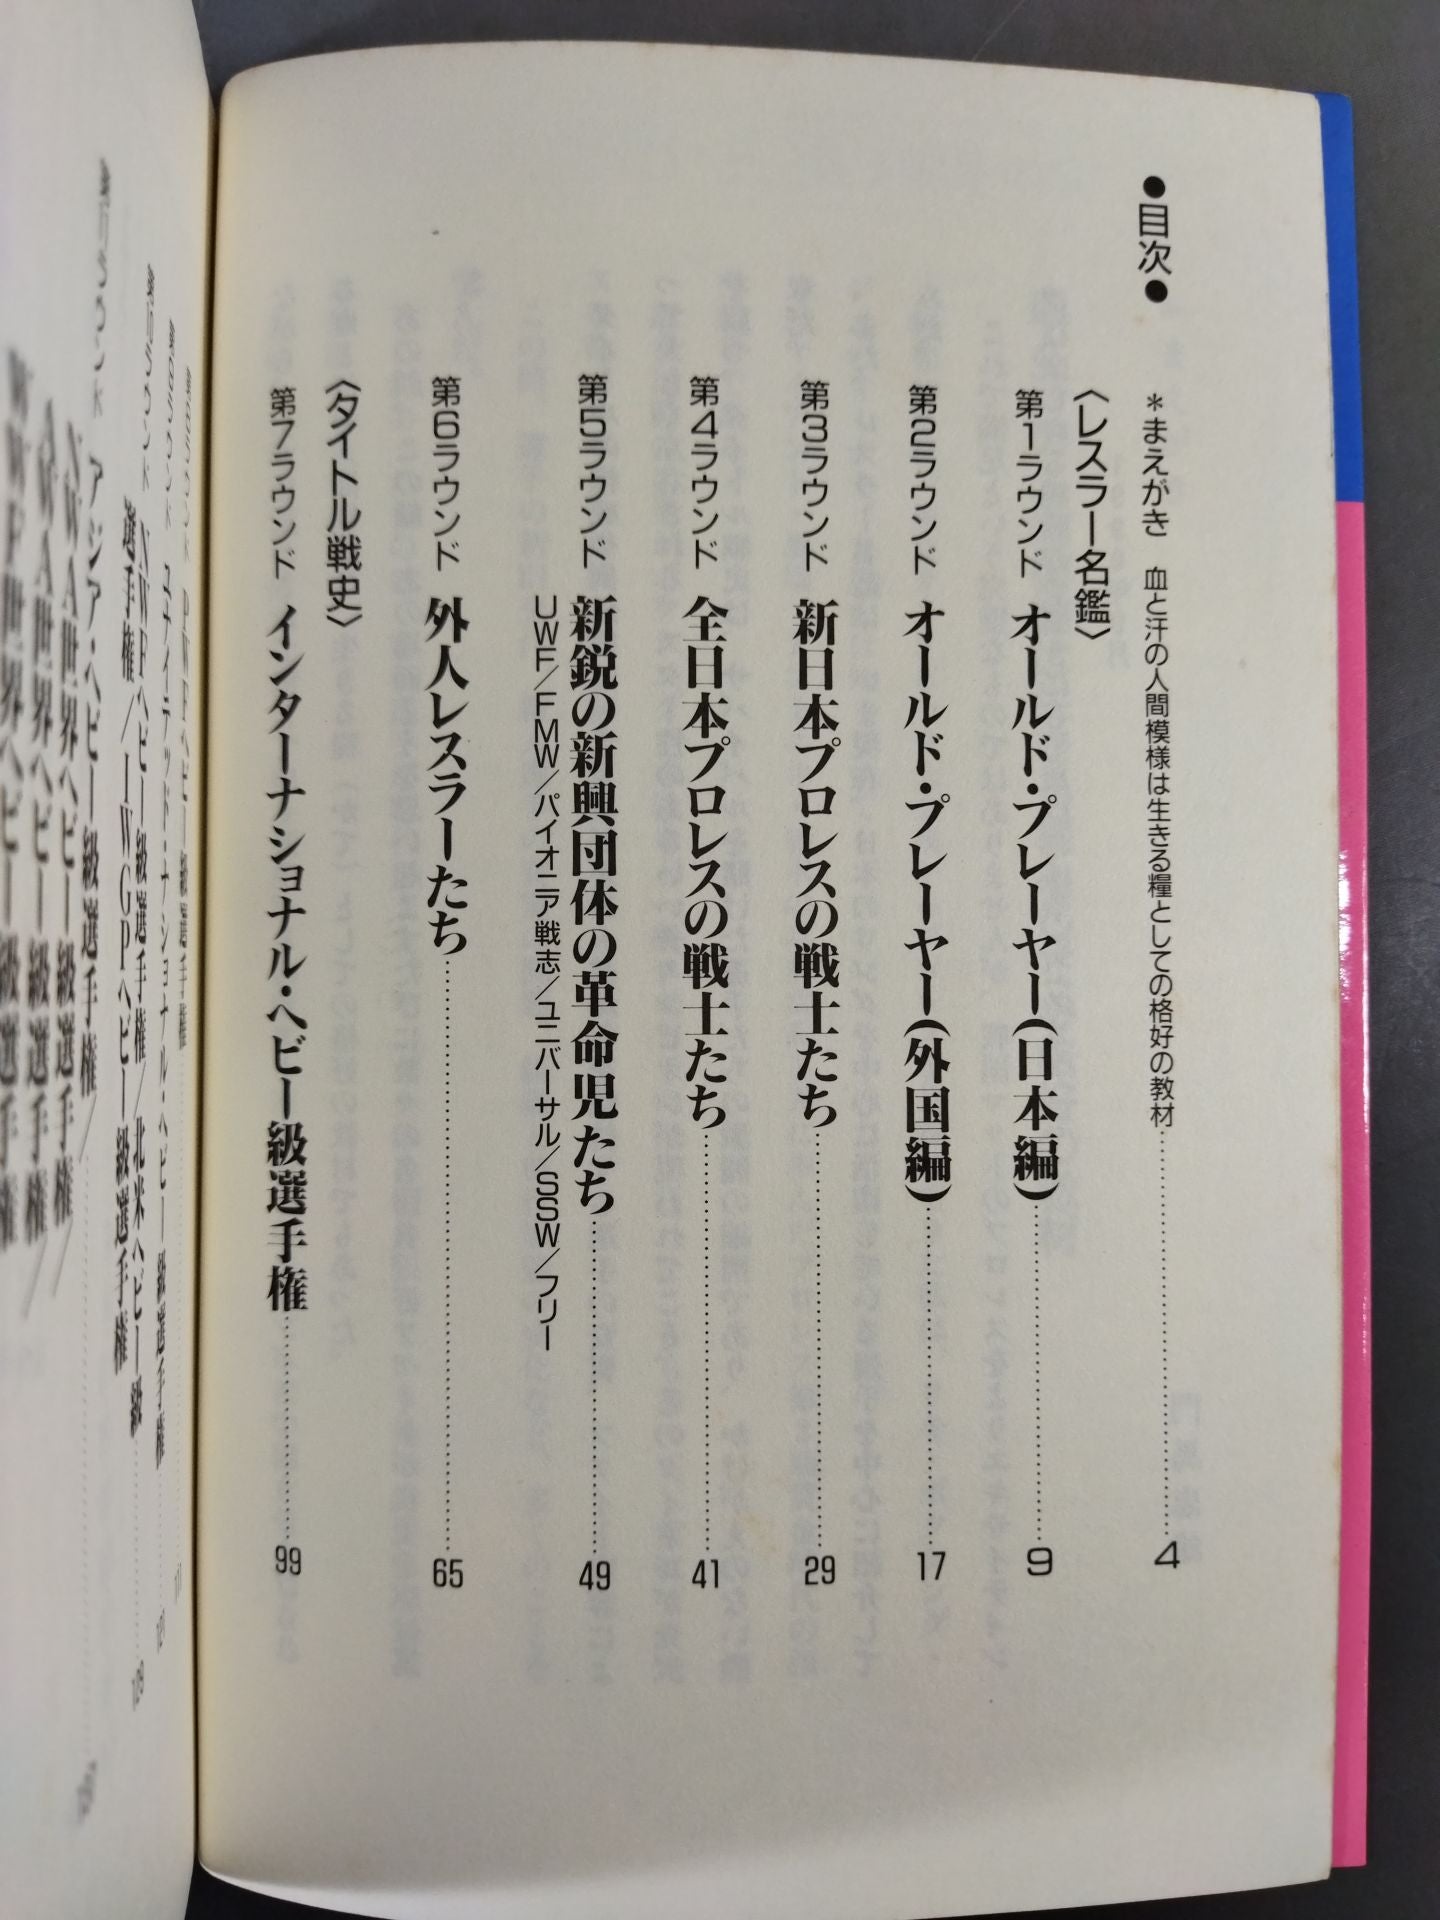 ●目次●
＊まえがき　血と汗の人間模様は生きる糧としての格好の教材……4
〈レスラー名鑑〉
第1ラウンド　オールド・プレーヤー(日本編)……9
第2ラウンド　オールド・プレーヤー(外国編)……17
第3ラウンド　新日本プロレスの戦士たち……29
第4ラウンド　全日本プロレスの戦士たち……41
第5ラウンド　新鋭の新興団体の革命児たち……49
UWF／FMW／パイオニア戦志／ユニバーサル／SSW／フリー
第6ラウンド　外人レスラーたち……65
〈タイトル戦史〉
第7ラウンド　インターナショナル・ヘビー級選手権……99
PWFヘビー級選手権
ユナイテッド・ナショナル・ヘビー級選手権
NWFヘビー級選手権／北米ヘビー級
選手権／IWGPヘビー級選手権
アジア・ヘビー級選手権／
NWA世界ヘビー級選手権／
AWA世界ヘビー級選手権／
WWF世界ヘビー級選手権